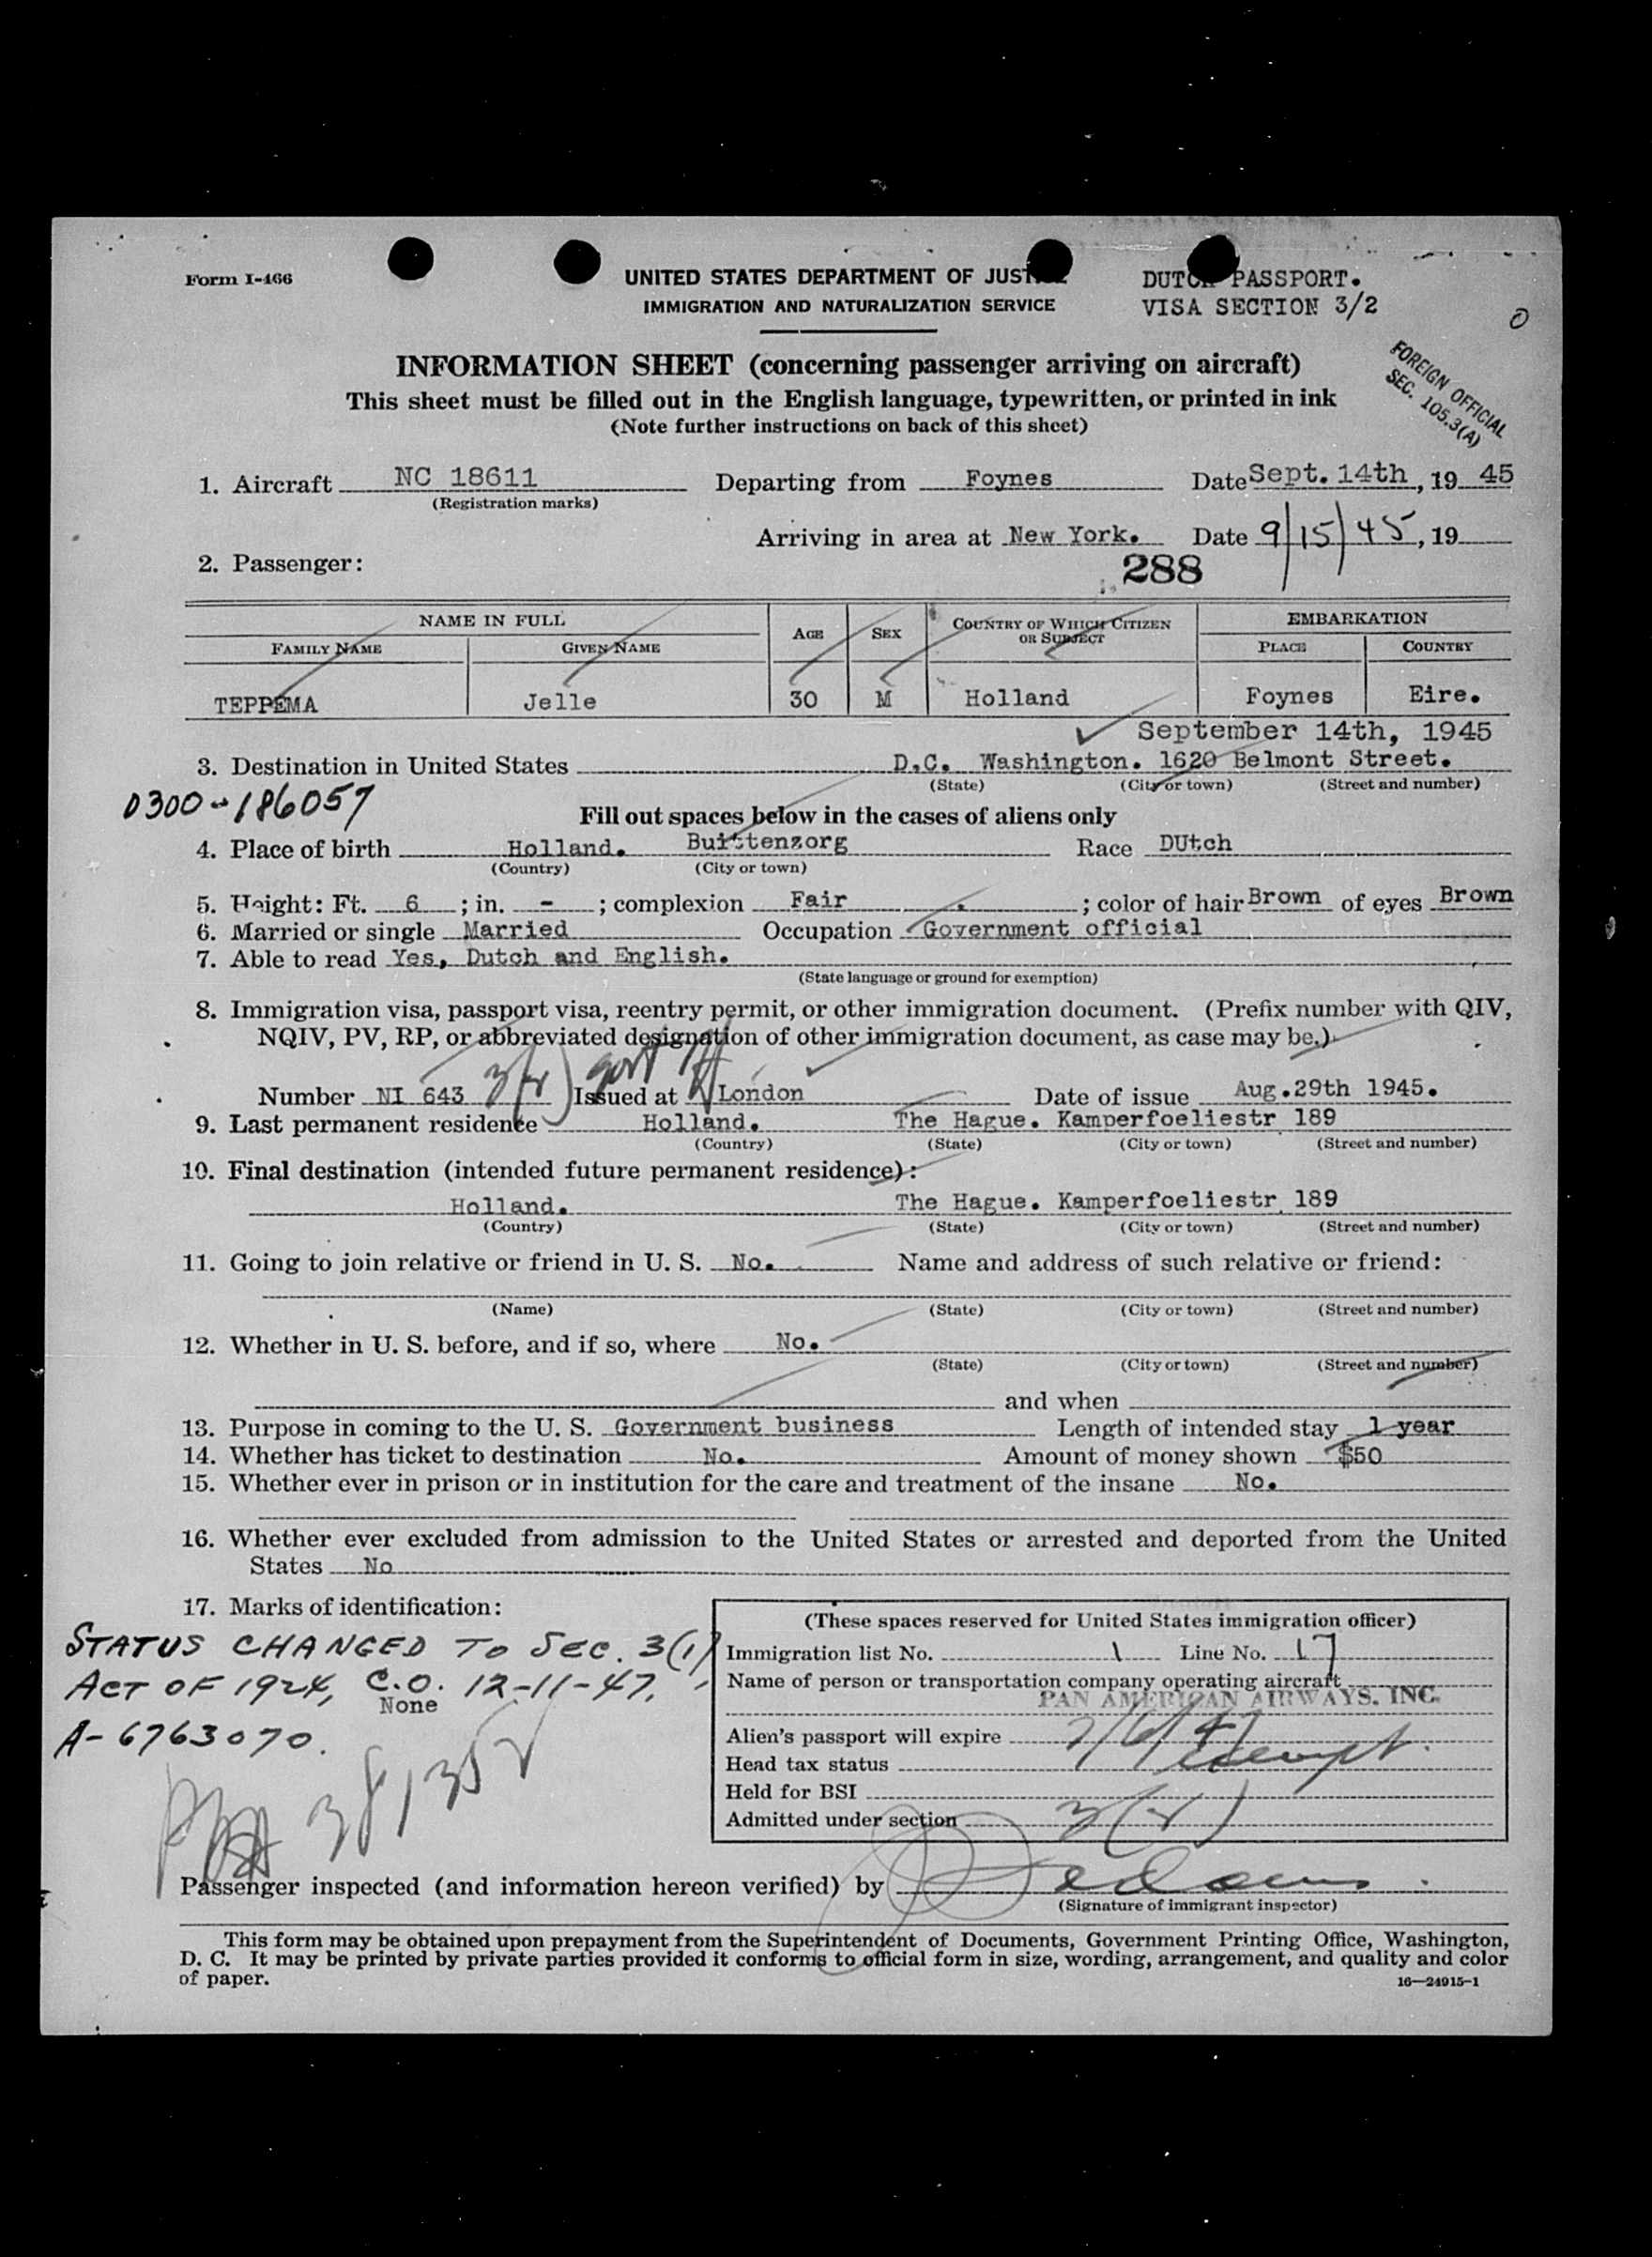 Form I-466
UNITED STATES DEPARTMENT OF JUSTICE
IMMIGRATION AND NATURALIZATION SERVICE
DUTCH PASSPORT.
VISA SECTION 3/2
0
FOREIGN OFFICIAL
SEC. 105.3(A)
INFORMATION SHEET (concerning passenger arriving on aircraft)
This sheet must be filled out in the English language, typewritten, or printed in ink
(Note further instructions on back of this sheet)
1. Aircraft NC 18611 Departing from Foynes Date Sept. 14th, 19 45
(Registration marks)
Arriving in area at New York. Date 9/15/45, 19
2. Passenger:
288
NAME IN FULL AGE SEX COUNTRY OF WHICH CITIZEN OR SUBJECT EMBARKATION
FAMILY NAME GIVEN NAME PLACE COUNTRY
TEPPEMA Jelle 30 M Holland Foynes Eire.
September 14th, 1945
3. Destination in United States D.C. Washington. 1620 Belmont Street.
(State) (City or town) (Street and number)
0300-186057
Fill out spaces below in the cases of aliens only
4. Place of birth Holland. Buittenzorg Race DUtch
(Country) (City or town)
5. Height: Ft. 6 ; in. - ; complexion Fair . ; color of hair Brown of eyes Brown
6. Married or single Married Occupation Government official
7. Able to read Yes, Dutch and English.
(State language or ground for exemption)
8. Immigration visa, passport visa, reentry permit, or other immigration document. (Prefix number with QIV,
NQIV, PV, RP, or abbreviated designation of other immigration document, as case may be.)
Number NI 643 3(2) govt Issued at London Date of issue Aug.29th 1945.
9. Last permanent residence Holland. The Hague. Kamperfoeliestr 189
(Country) (State) (City or town) (Street and number)
10. Final destination (intended future permanent residence):
Holland. The Hague. Kamperfoeliestr 189
(Country) (State) (City or town) (Street and number)
11. Going to join relative or friend in U. S. No. Name and address of such relative or friend:
(Name) (State) (City or town) (Street and number)
12. Whether in U. S. before, and if so, where No.
(State) (City or town) (Street and number)
and when
13. Purpose in coming to the U. S. Government business Length of intended stay 1 year
14. Whether has ticket to destination No. Amount of money shown $50
15. Whether ever in prison or in institution for the care and treatment of the insane No.
16. Whether ever excluded from admission to the United States or arrested and deported from the United
States No
17. Marks of identification:
STATUS CHANGED TO SEC. 3(1)
ACT OF 1924, C.O. 12-11-47.
None
A-6763070.
(These spaces reserved for United States immigration officer)
Immigration list No. 1 Line No. 17
Name of person or transportation company operating aircraft
PAN AMERICAN AIRWAYS, INC.
Alien's passport will expire 7/6/47
Head tax status exempt.
Held for BSI
Admitted under section 3(2)
Passenger inspected (and information hereon verified) by
(Signature of immigrant inspector)
This form may be obtained upon prepayment from the Superintendent of Documents, Government Printing Office, Washington,
D. C. It may be printed by private parties provided it conforms to official form in size, wording, arrangement, and quality and color
of paper.
16—24915-1